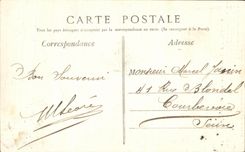 CARTE POSTALE
Tous les pays étrangers n'acceptent pas la correspondance au recto. (Se renseigner à la Poste)
Correspondance
Adresse
Bon Souvenir
Monsieur Marcel
41 Rue Blondel
Courbevoie
Seine